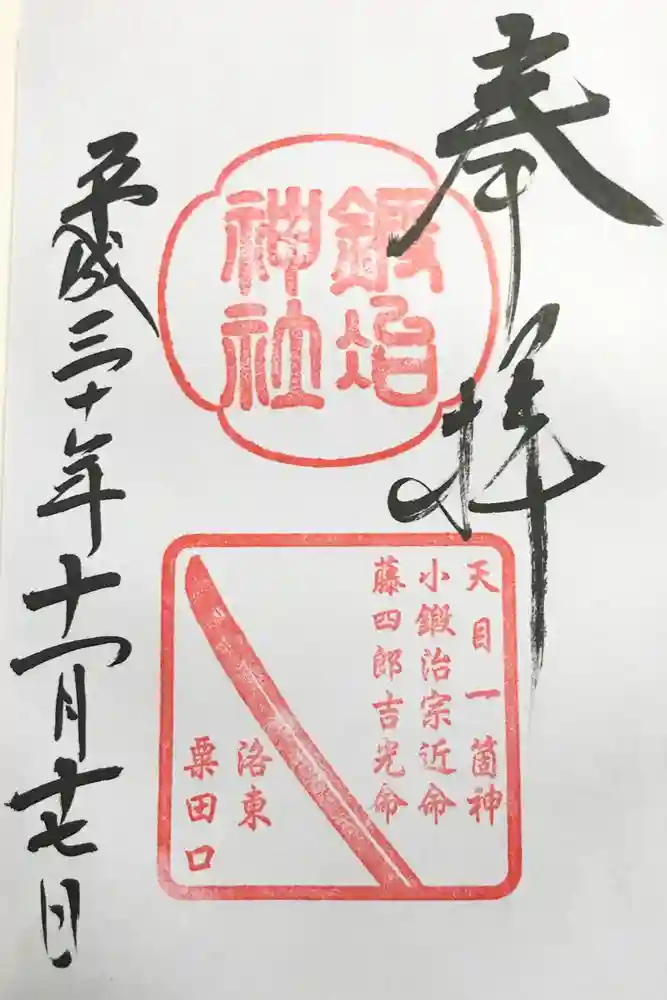 奉拝
鍛冶
神社
天目一箇神
小鍛治宗近命
藤四郎吉光命
洛東
粟田口
平成三十年十一月十七日